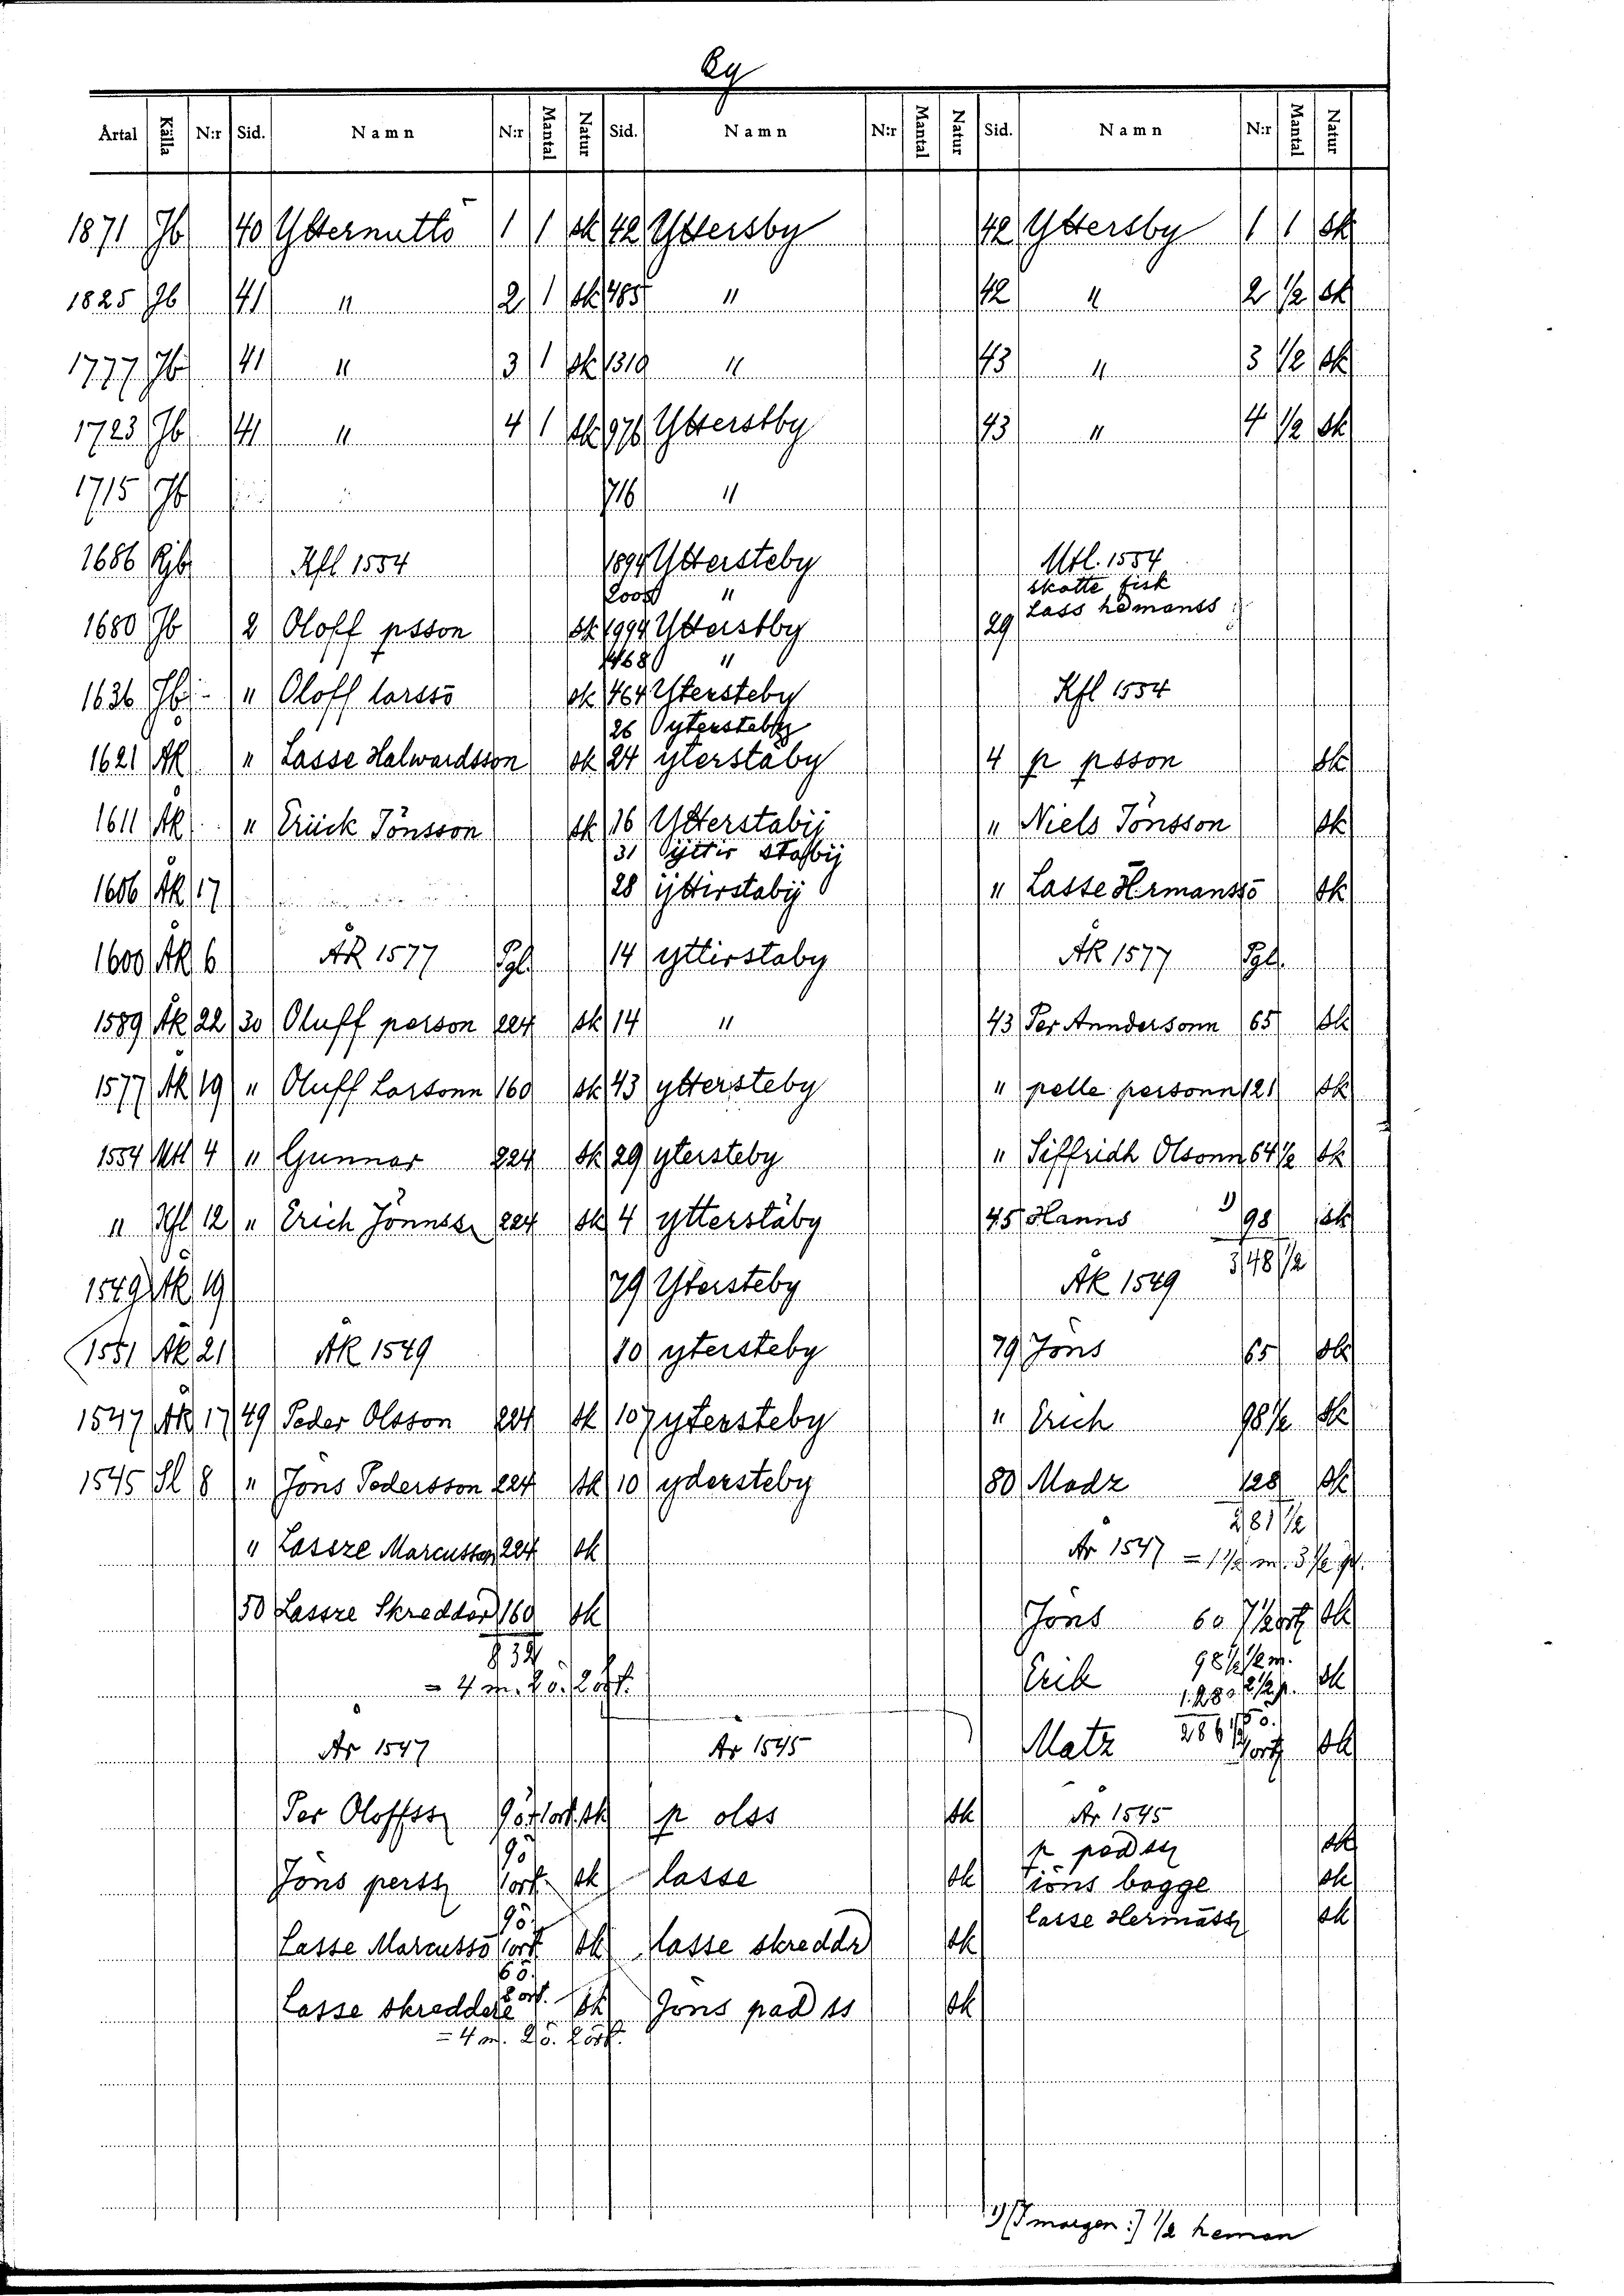 By
Artal Källa N:r Sid. Namn N:r Mantal Natur Sid. Namn N:r Mantal Natur Sid. Namn N:r Mantal Natur
1871 Jb 40 Ytternuttö 1 1 sk 42 Yttersby 42 Yttersby 1 1 sk
1825 Jb 41 " 2 1 sk 485 " 42 " 2 1/2 sk
1777 Jb 41 " 3 1 sk 1319 " 43 " 3 1/2 sk
1723 Jb 41 " 4 1 sk 976 Ytterstby 43 " 4 1/2 sk
1715 Jb 716 "
1686 Rjb Kfl 1554 1894 Yttersteby Mtl. 1554
2005 " skatte fisk
1680 Jb 2 Oloff psson sk 1994 Ytterstby 29 Lass hemanss
1468 "
1636 Jb " Oloff larssō sk 464 Ytersteby Kfl 1554
26 Oytersteby
1621 Åk " Lasse Halwardsson sk 24 yterstäby 4 p psson sk
1611 Åk " Erück Jönsson sk 16 Ytterstabij " Niels Jönsson sk
31 Öijttir stabij
1606 Åk 17 28 ijttirstabij " Lasse Hermanssō sk
1600 Åk 6 ÅK 1577 Pgl. 14 yttirstaby ÅK 1577 Pgl.
1589 Åk 22 30 Oluff person 224 sk 14 " 43 Per Anndersonn 65 sk
1577 Åk 19 " Oluff Larsonn 160 sk 43 yttersteby " pelle personn 121 sk
1554 Mtl 4 " Gunnar 224 sk 29 ytersteby " Siffridh Olsonn 64 1/2 sk
" Kfl 12 " Erich Jönnss 224 sk 4 ytterstäby 45 Hanns 1) 98 sk
348 1/2
1549 Åk 19 79 Ytersteby ÅK 1549
1551 Åk 21 ÅK 1549 10 ytersteby 79 Jöns 65 sk
1547 Åk 17 49 Peder Olsson 224 sk 107 ytersteby " Erich 98 1/2 sk
1545 Sl 8 " Jöns Pedersson 224 sk 10 ydersteby 80 Madz 128 sk
281 1/2
" Lassze Marcusson 224 sk År 1547
50 Lassze Skreddar 160 sk Jöns sk
832
= 4 m. 2 ö. 2 ört. Erik sk
År 1547 År 1545 Matz sk
Per Oloffss 9ö 1 ort. sk p olss sk År 1545
9ö p pedss sk
Jöns perss 1 ort. sk lasse sk jöns bagge sk
9ö lasse Hermāss sk
Lasse Marcussō 1 ort sk lasse skreddr sk
6ö.
2 ort.
Lasse skreddere sk Jöns pad ss sk
= 4 m. 2 ö. 2 ört.
1) [I margen:] 1/2 heman